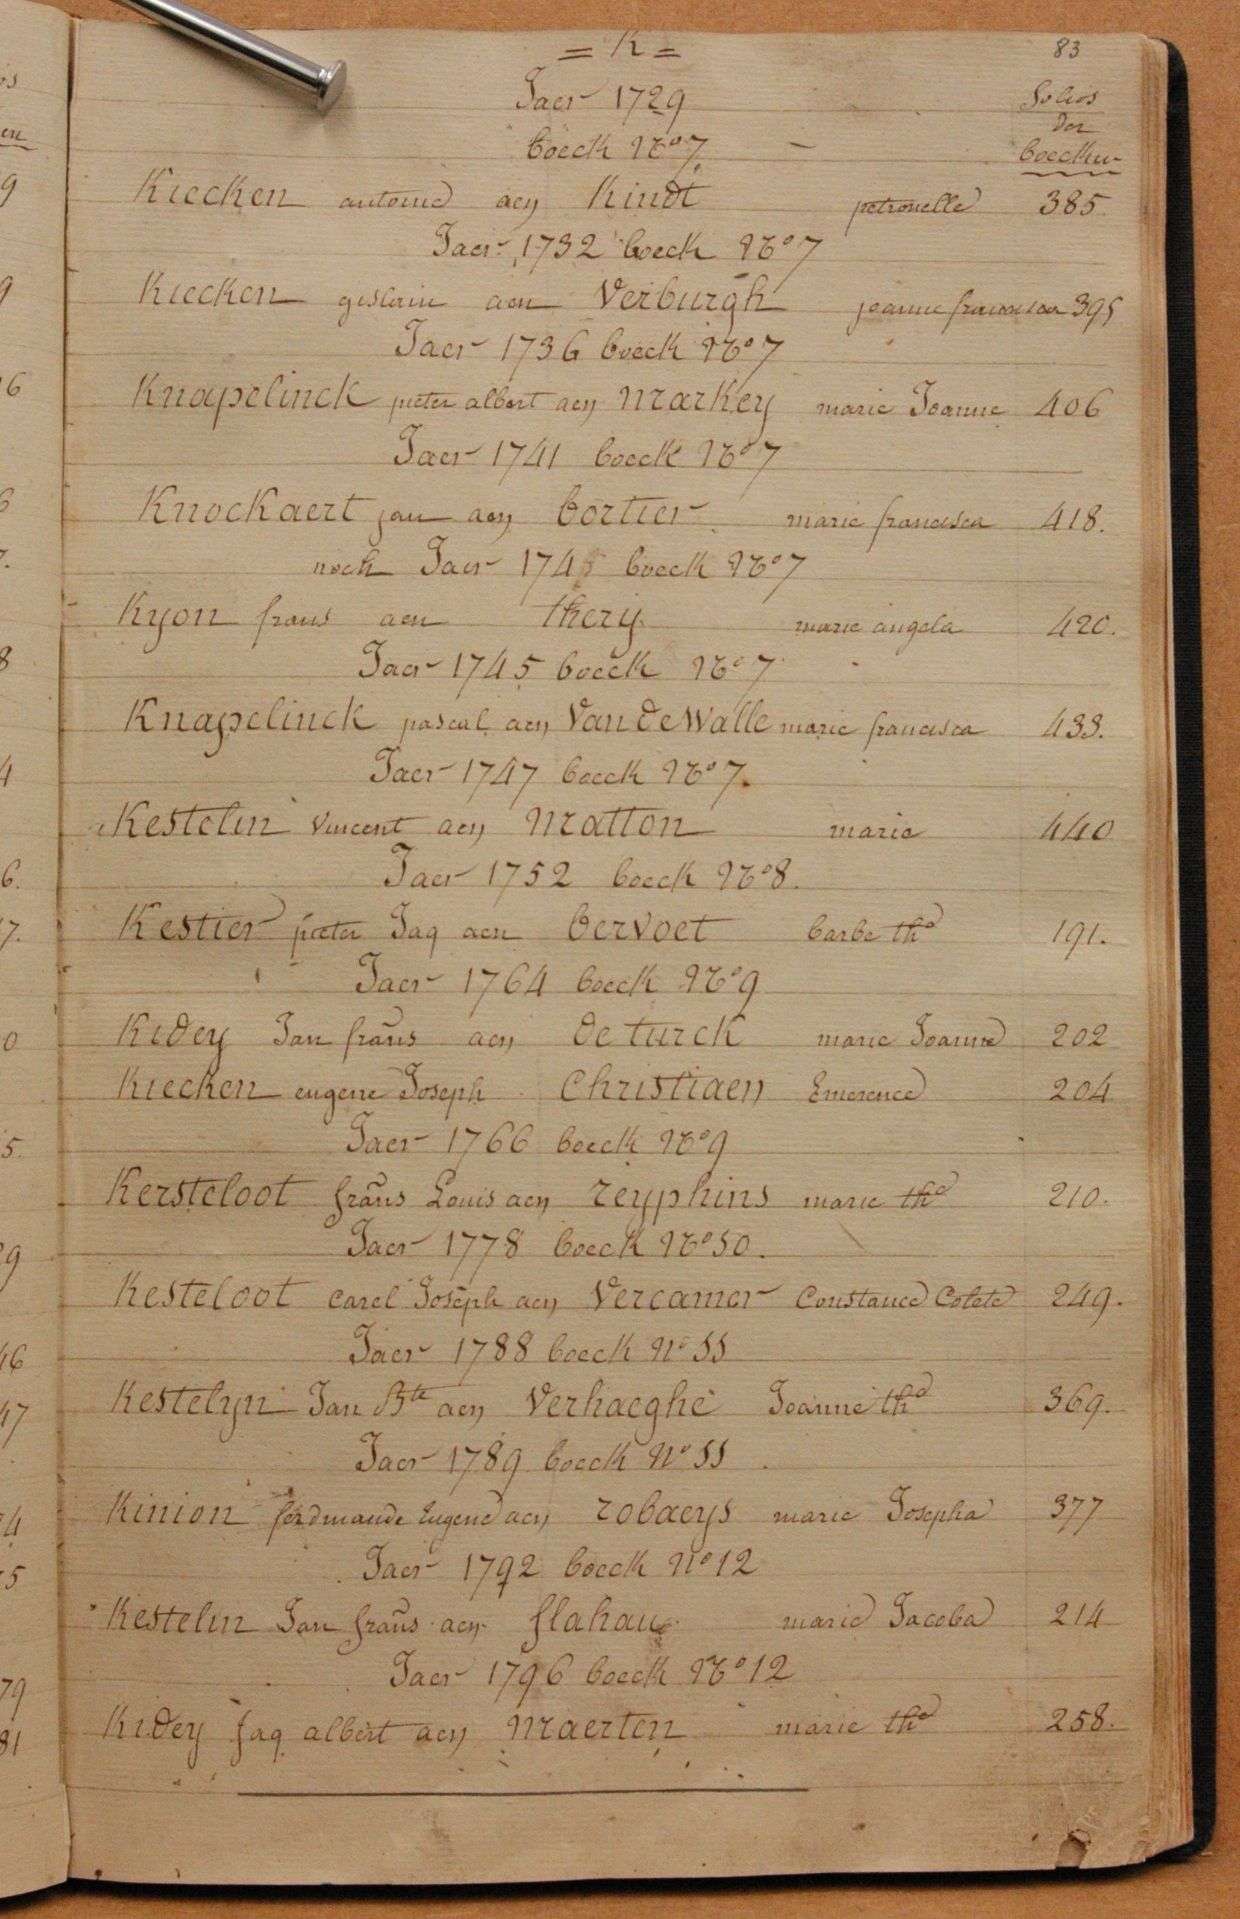 = K = 83
Jaer 1729 folios
der
boeck No 7 - boecken
Kiecken antoine aen Kindt petronelle 385.
Jaer 1732 boeck No 7
Kiecken gislain aen Verburgh joanne francisca 395
Jaer 1736 boeck No 7
Knapelinck pieter albert aen Markey marie Joanne 406
Jaer 1741 boeck No 7
Knockaert jan aen bortier marie francisca 418.
noch Jaer 174 boeck No 7
Kyon frans aen thery marie angela 420.
Jaer 1745 boeck No 7
Knapelinck pascal aen Van de Walle marie francisca 433.
Jaer 1747 boeck No 7.
Kestelin vincent aen Matton marie 440
Jaer 1752 boeck No 8.
Kestier pieter Jaq aen bervoet barbe the 191.
Jaer 1764 boeck No 9
Kidey Jan frans aen de turck marie Joanne 202
Kiecken eugene Joseph Christiaen Emerence 204
Jaer 1766 boeck No 9
Kersteloot frans Louis aen reyphins marie the 210.
Jaer 1778 boeck No 50.
Kesteloot carel Joseph aen Vercamer Constance Colete 249.
Jaer 1788 boeck No 55
Kestelyn Jan Bte aen Verhaeghe Joanne the 369.
Jaer 1789 boeck No 55
Kinion ferdinande Eugene aen robaeys marie Josepha 377
Jaer 1792 boeck No 12
Kestelin Jan frans aen flahau marie Jacoba 214
Jaer 1796 boeck No 12
Kidey Jaq albert aen Maerten marie the 258.